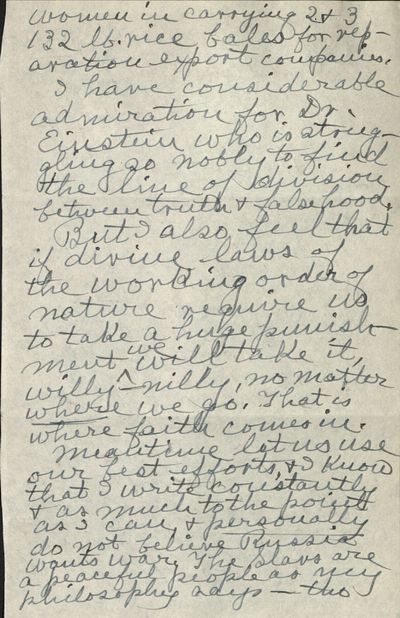 women in carrying 2 & 3
132 lb. rice bales for rep-
aration export companies.
I have considerable
admiration for Dr.
Einstein who is strug-
gling so nobly to find
the line of division
between truth & falsehood.
But I also feel that
if divine laws of
the working order of
nature require us
to take a huge punish-
ment we will take it,
willy-nilly, no matter
where we go. That is
where faith comes in.
Meantime let us use
our best efforts, & I know
that I write constantly
& as much to the point
as I can, & personally
do not believe Russia
wants war. The Slavs are
a peaceful people as my
philosophy says — tho